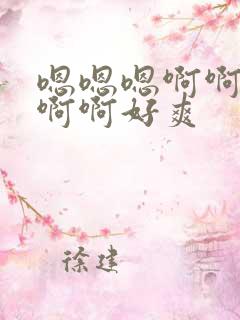 嗯嗯嗯啊啊
啊啊好爽
徐建